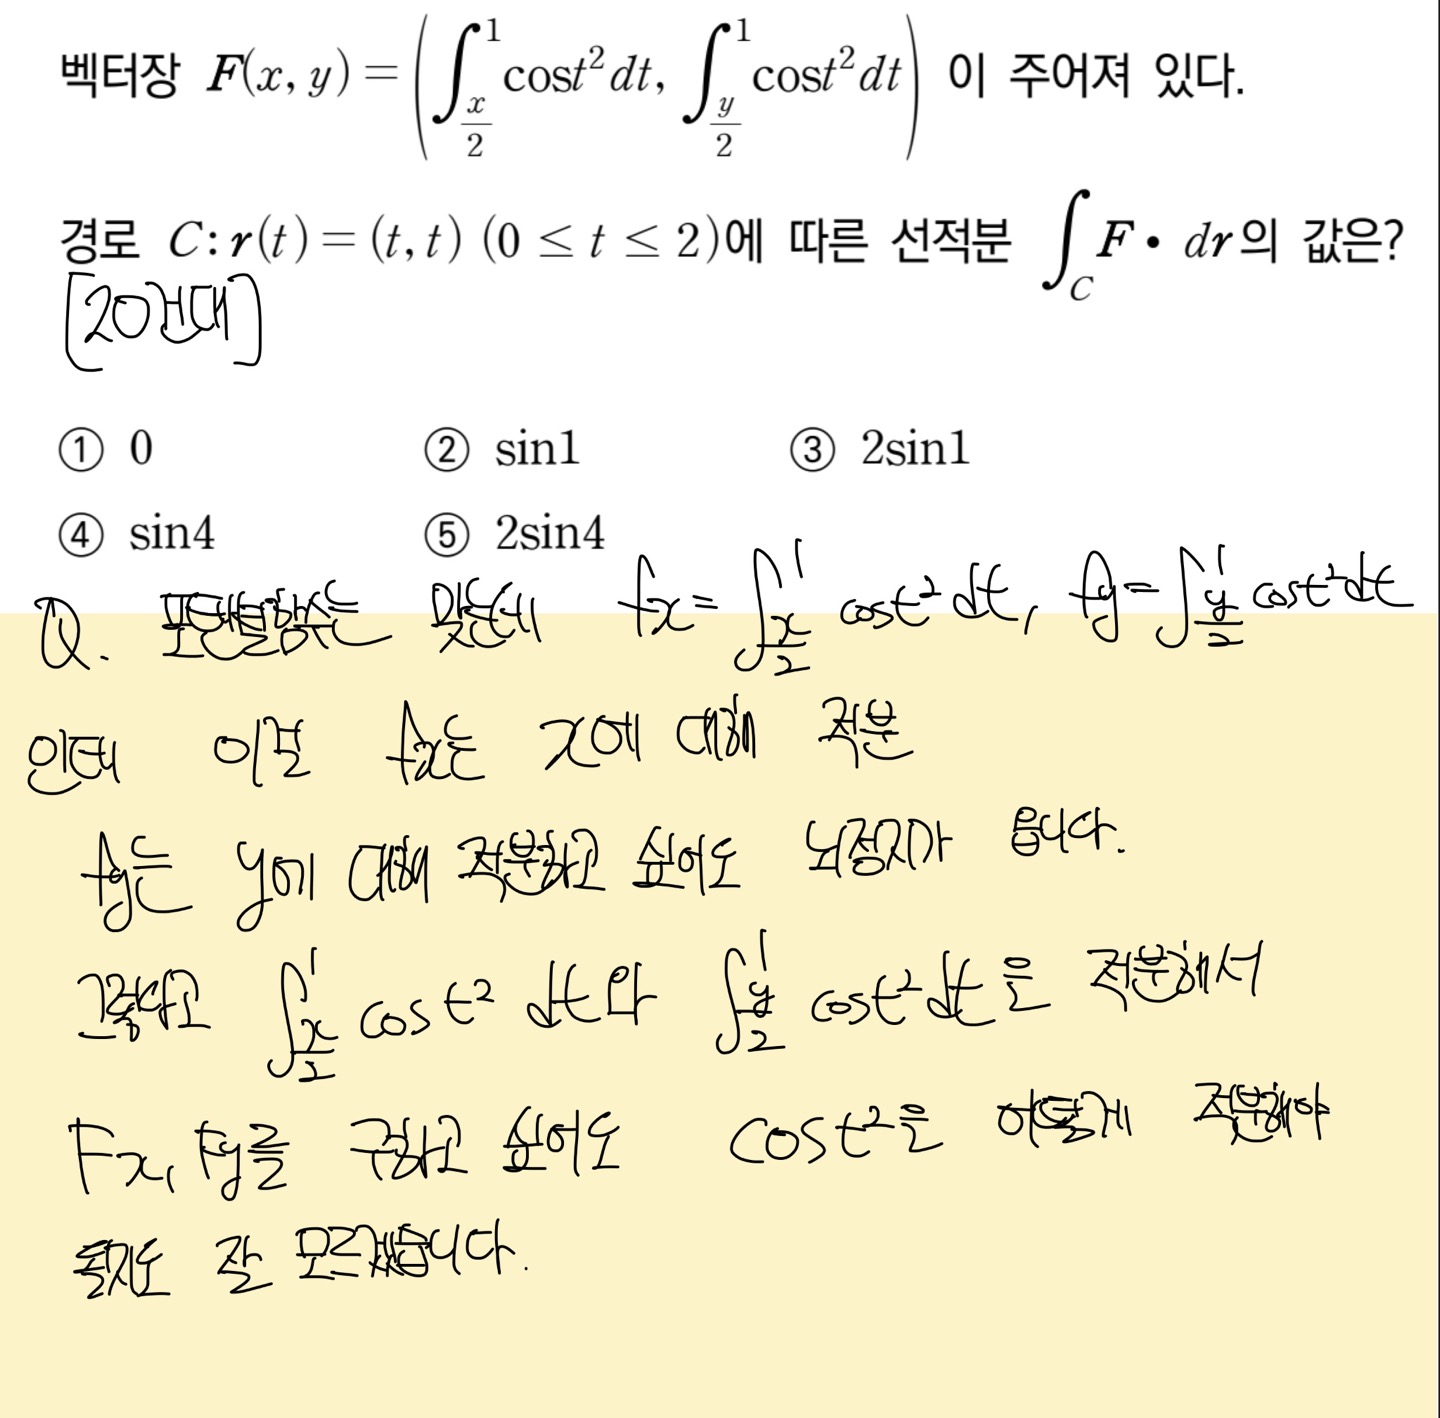 벡터장 F(x, y) = (∫_{x/2}^{1} cost² dt, ∫_{y/2}^{1} cost² dt) 이 주어져 있다.
경로 C: r(t) = (t, t) (0 ≤ t ≤ 2)에 따른 선적분 ∫_C F • dr의 값은?
[20건대]
① 0 ② sin1 ③ 2sin1
④ sin4 ⑤ 2sin4
Q. 포텐셜함수는 맞는데 fx = ∫_{x/2}^{1} cost² dt, fy = ∫_{y/2}^{1} cost² dt
인데 이걸 fx는 x에 대해 적분
fy는 y에 대해 적분하고 싶어도 뇌정지가 옵니다.
그렇다고 ∫_{x/2}^{1} cost² dt와 ∫_{y/2}^{1} cost² dt은 적분해서
Fx, Fy를 구하고 싶어도 cost²은 어떻게 적분해야
될지도 잘 모르겠습니다.